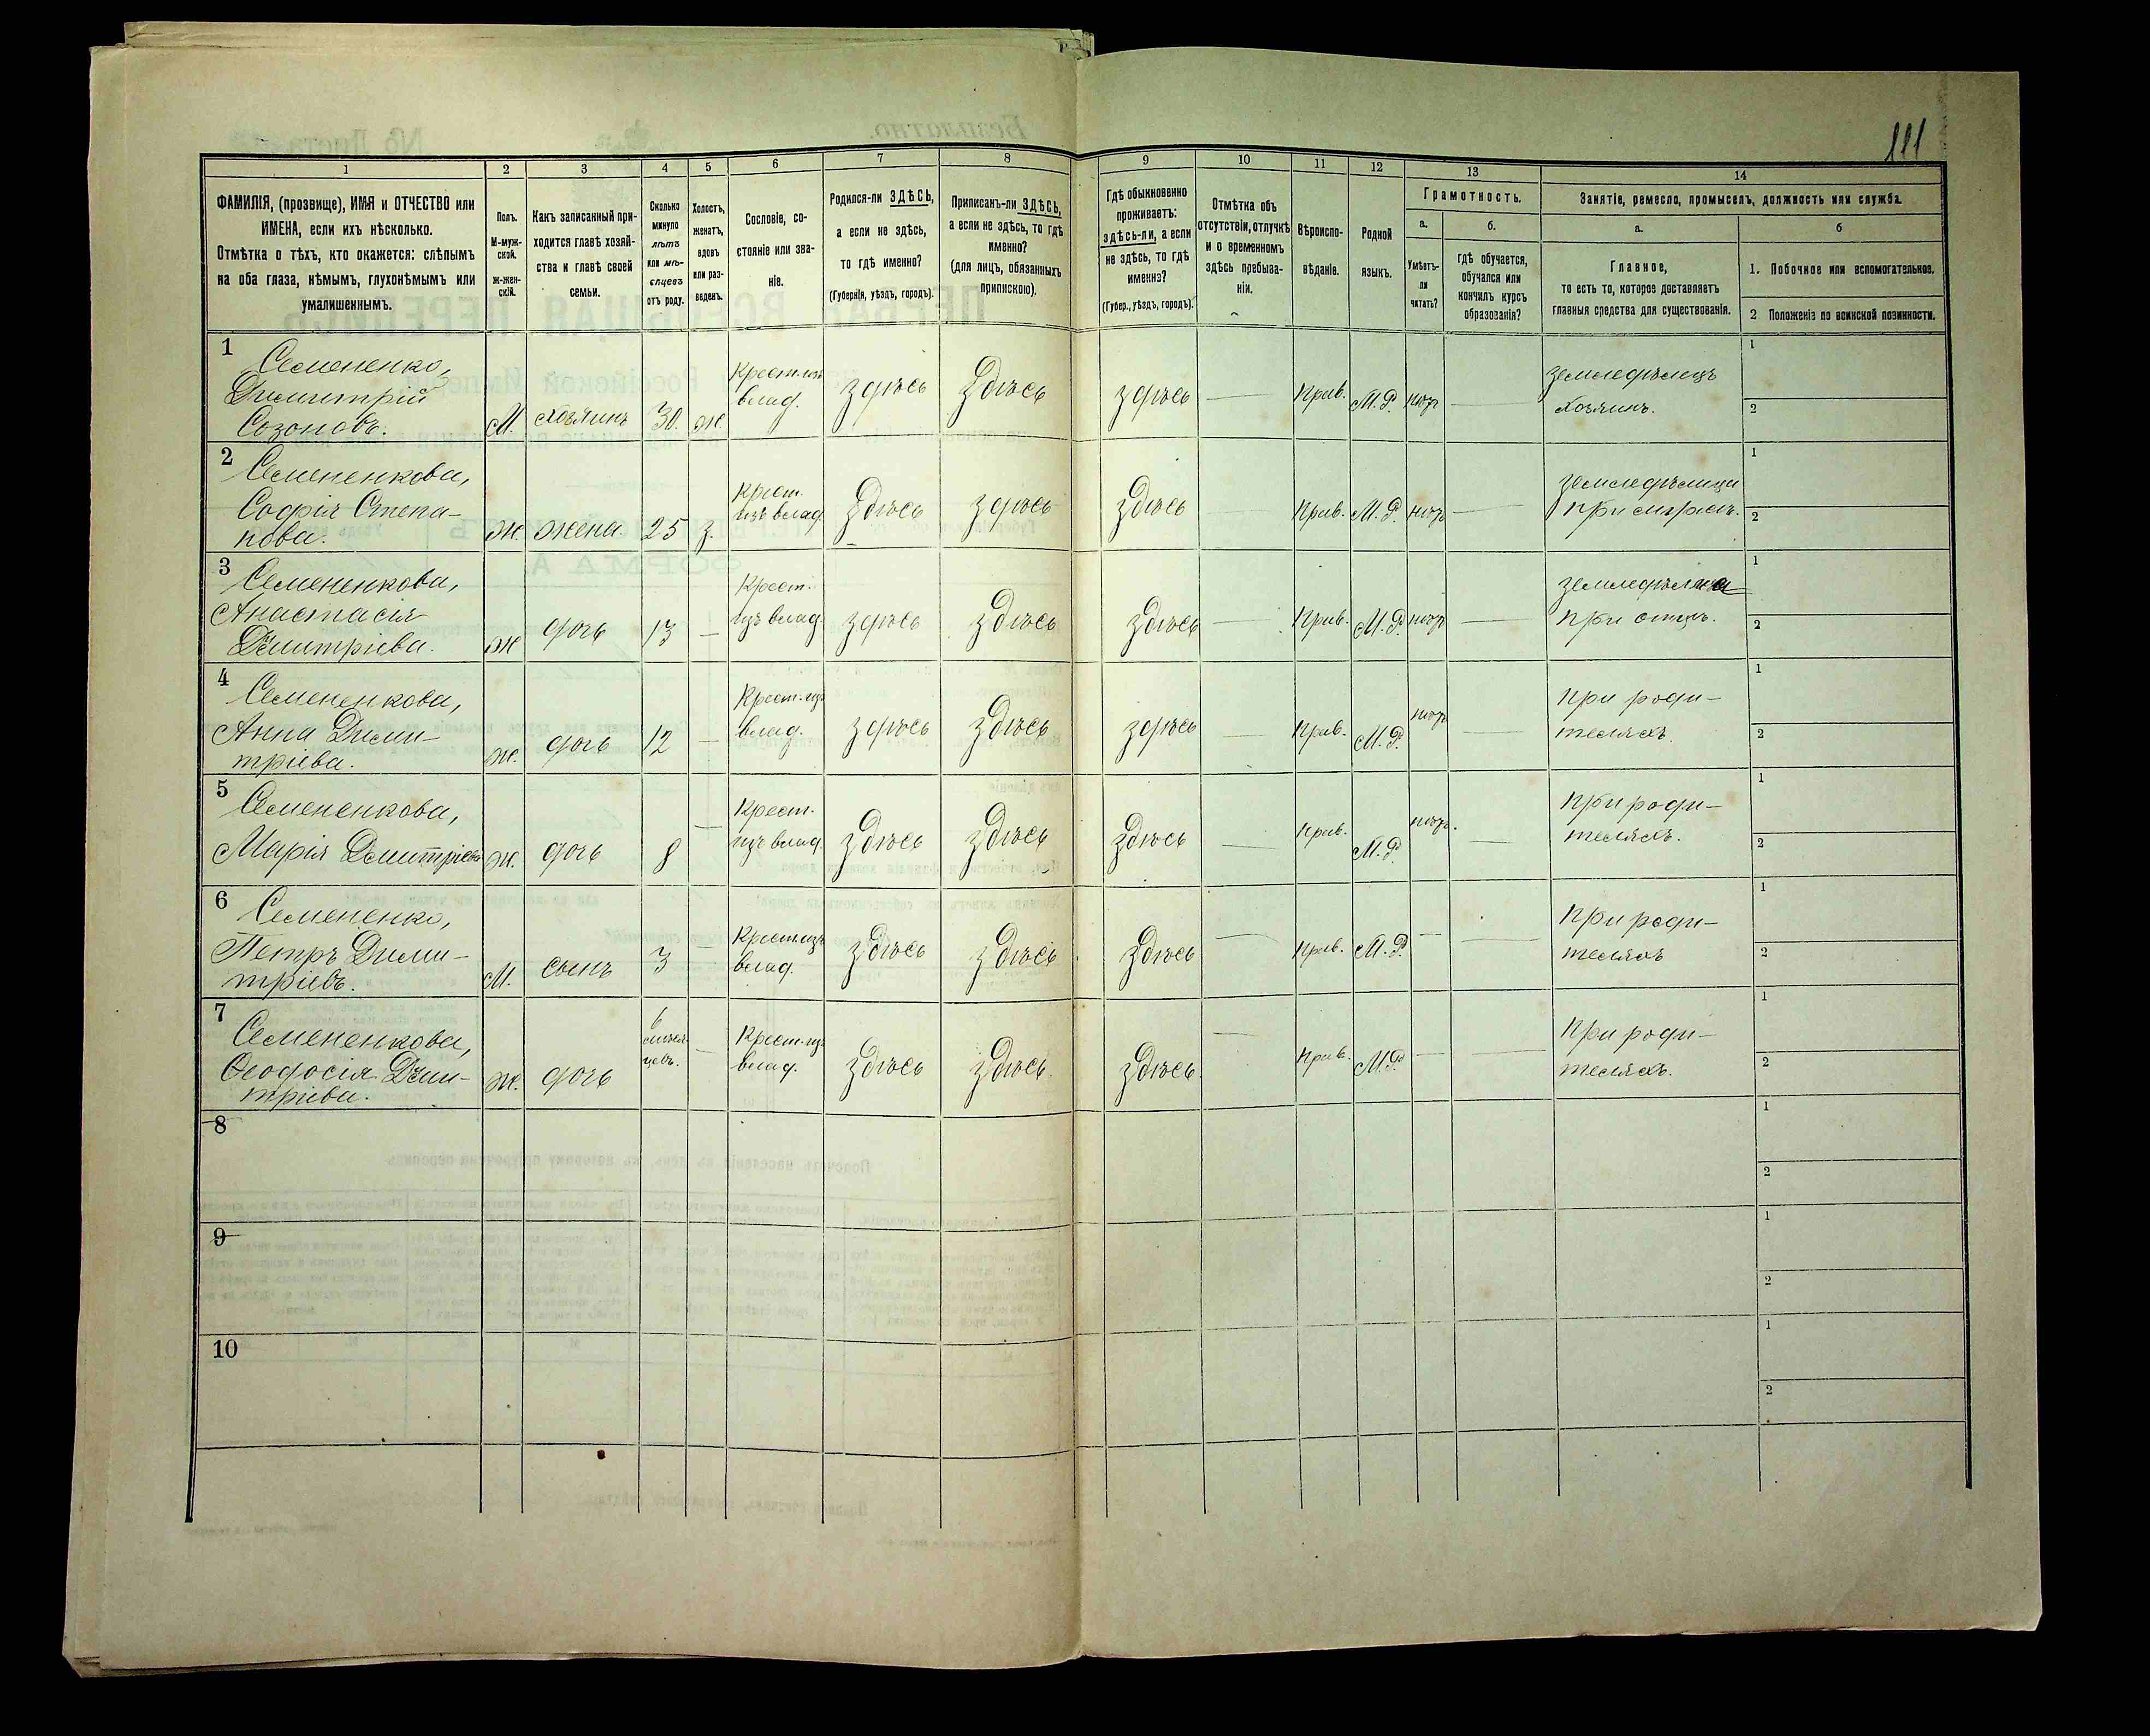 111
1 2 3 4 5 6 7 8 9 10 11 12 13 14
ФАМИЛІЯ, (прозвище), ИМЯ и ОТЧЕСТВО или
ИМЕНА, если ихъ нѣсколько.
Отмѣтка о тѣхъ, кто окажется: слѣпымъ
на оба глаза, нѣмымъ, глухонѣмымъ или
умалишеннымъ.
Полъ.
М-муж-
ской.
ж-жен-
скій.
Какъ записанный при-
ходится главѣ хозяй-
ства и главѣ своей
семьи.
Сколько
минуло
лѣтъ
или мѣ-
сяцевъ
отъ роду.
Холостъ,
женатъ,
вдовъ
или раз-
веденъ.
Сословіе, со-
стояніе или зва-
ніе.
Родился-ли ЗДѢСЬ,
а если не здѣсь,
то гдѣ именно?
(Губернія, уѣздъ, городъ).
Приписанъ-ли ЗДѢСЬ,
а если не здѣсь, то гдѣ
именно?
(для лицъ, обязанныхъ
припискою).
Гдѣ обыкновенно
проживаетъ:
здѣсь-ли, а если
не здѣсь, то гдѣ
именно?
(Губер., уѣздъ, городъ).
Отмѣтка объ
отсутствіи, отлучкѣ
и о временномъ
здѣсь пребыва-
ніи.
Вѣроиспо-
вѣданіе.
Родной
языкъ.
Грамотность.
а.
Умѣетъ-
ли
читать?
б.
гдѣ обучается,
обучался или
кончилъ курсъ
образованія?
Занятіе, ремесло, промыселъ, должность или служба.
а.
Главное,
то есть то, которое доставляетъ
главныя средства для существованія.
б
1. Побочное или вспомогательное.
2 Положеніе по воинской повинности.
1
Семененко,
Димитрій
Созоновъ.
М.
хозяинъ
30.
ж.
Крест. изъ
влад.
здѣсь
здѣсь
здѣсь
—
Прав.
М.Р.
нѣтъ
—
земледѣлецъ
хозяинъ.
1
2
2
Семененкова,
Софія Степа-
нова.
ж.
жена.
25
з.
Крест.
изъ влад.
здѣсь
здѣсь
здѣсь
—
Прав.
М.Р.
нѣтъ
—
земледѣлица
1
2
3
Семененкова,
Анастасія
Димитріева.
ж
дочь
13
—
Крест.
изъ влад.
здѣсь
здѣсь
здѣсь
—
Прав.
М.Р.
нѣтъ
—
при отцѣ.
1
2
4
Семененкова,
Анна Дими-
тріева.
ж.
дочь
12
—
Крест. изъ
влад.
здѣсь
здѣсь
здѣсь
—
Прав.
М.Р.
нѣтъ
—
при роди-
теляхъ.
1
2
5
Семененкова,
Марія Димитріева
ж.
дочь
8
—
Крест.
изъ влад.
здѣсь
здѣсь
здѣсь
—
Прав.
М.Р.
нѣтъ.
—
при роди-
теляхъ.
1
2
6
Семененко,
Петръ Дими-
тріевъ.
М.
сынъ
3
—
Крест. изъ
влад.
здѣсь
здѣсь
здѣсь
—
Прав.
М.Р.
—
—
при роди-
теляхъ
1
2
7
Семененкова,
Ѳеодосія Дими-
тріева.
ж.
дочь
6
мѣся-
цевъ.
—
Крест. изъ
влад.
здѣсь
здѣсь.
здѣсь.
—
Прав.
М.Р.
—
—
при роди-
теляхъ.
1
2
8
1
2
9
1
2
10
1
2